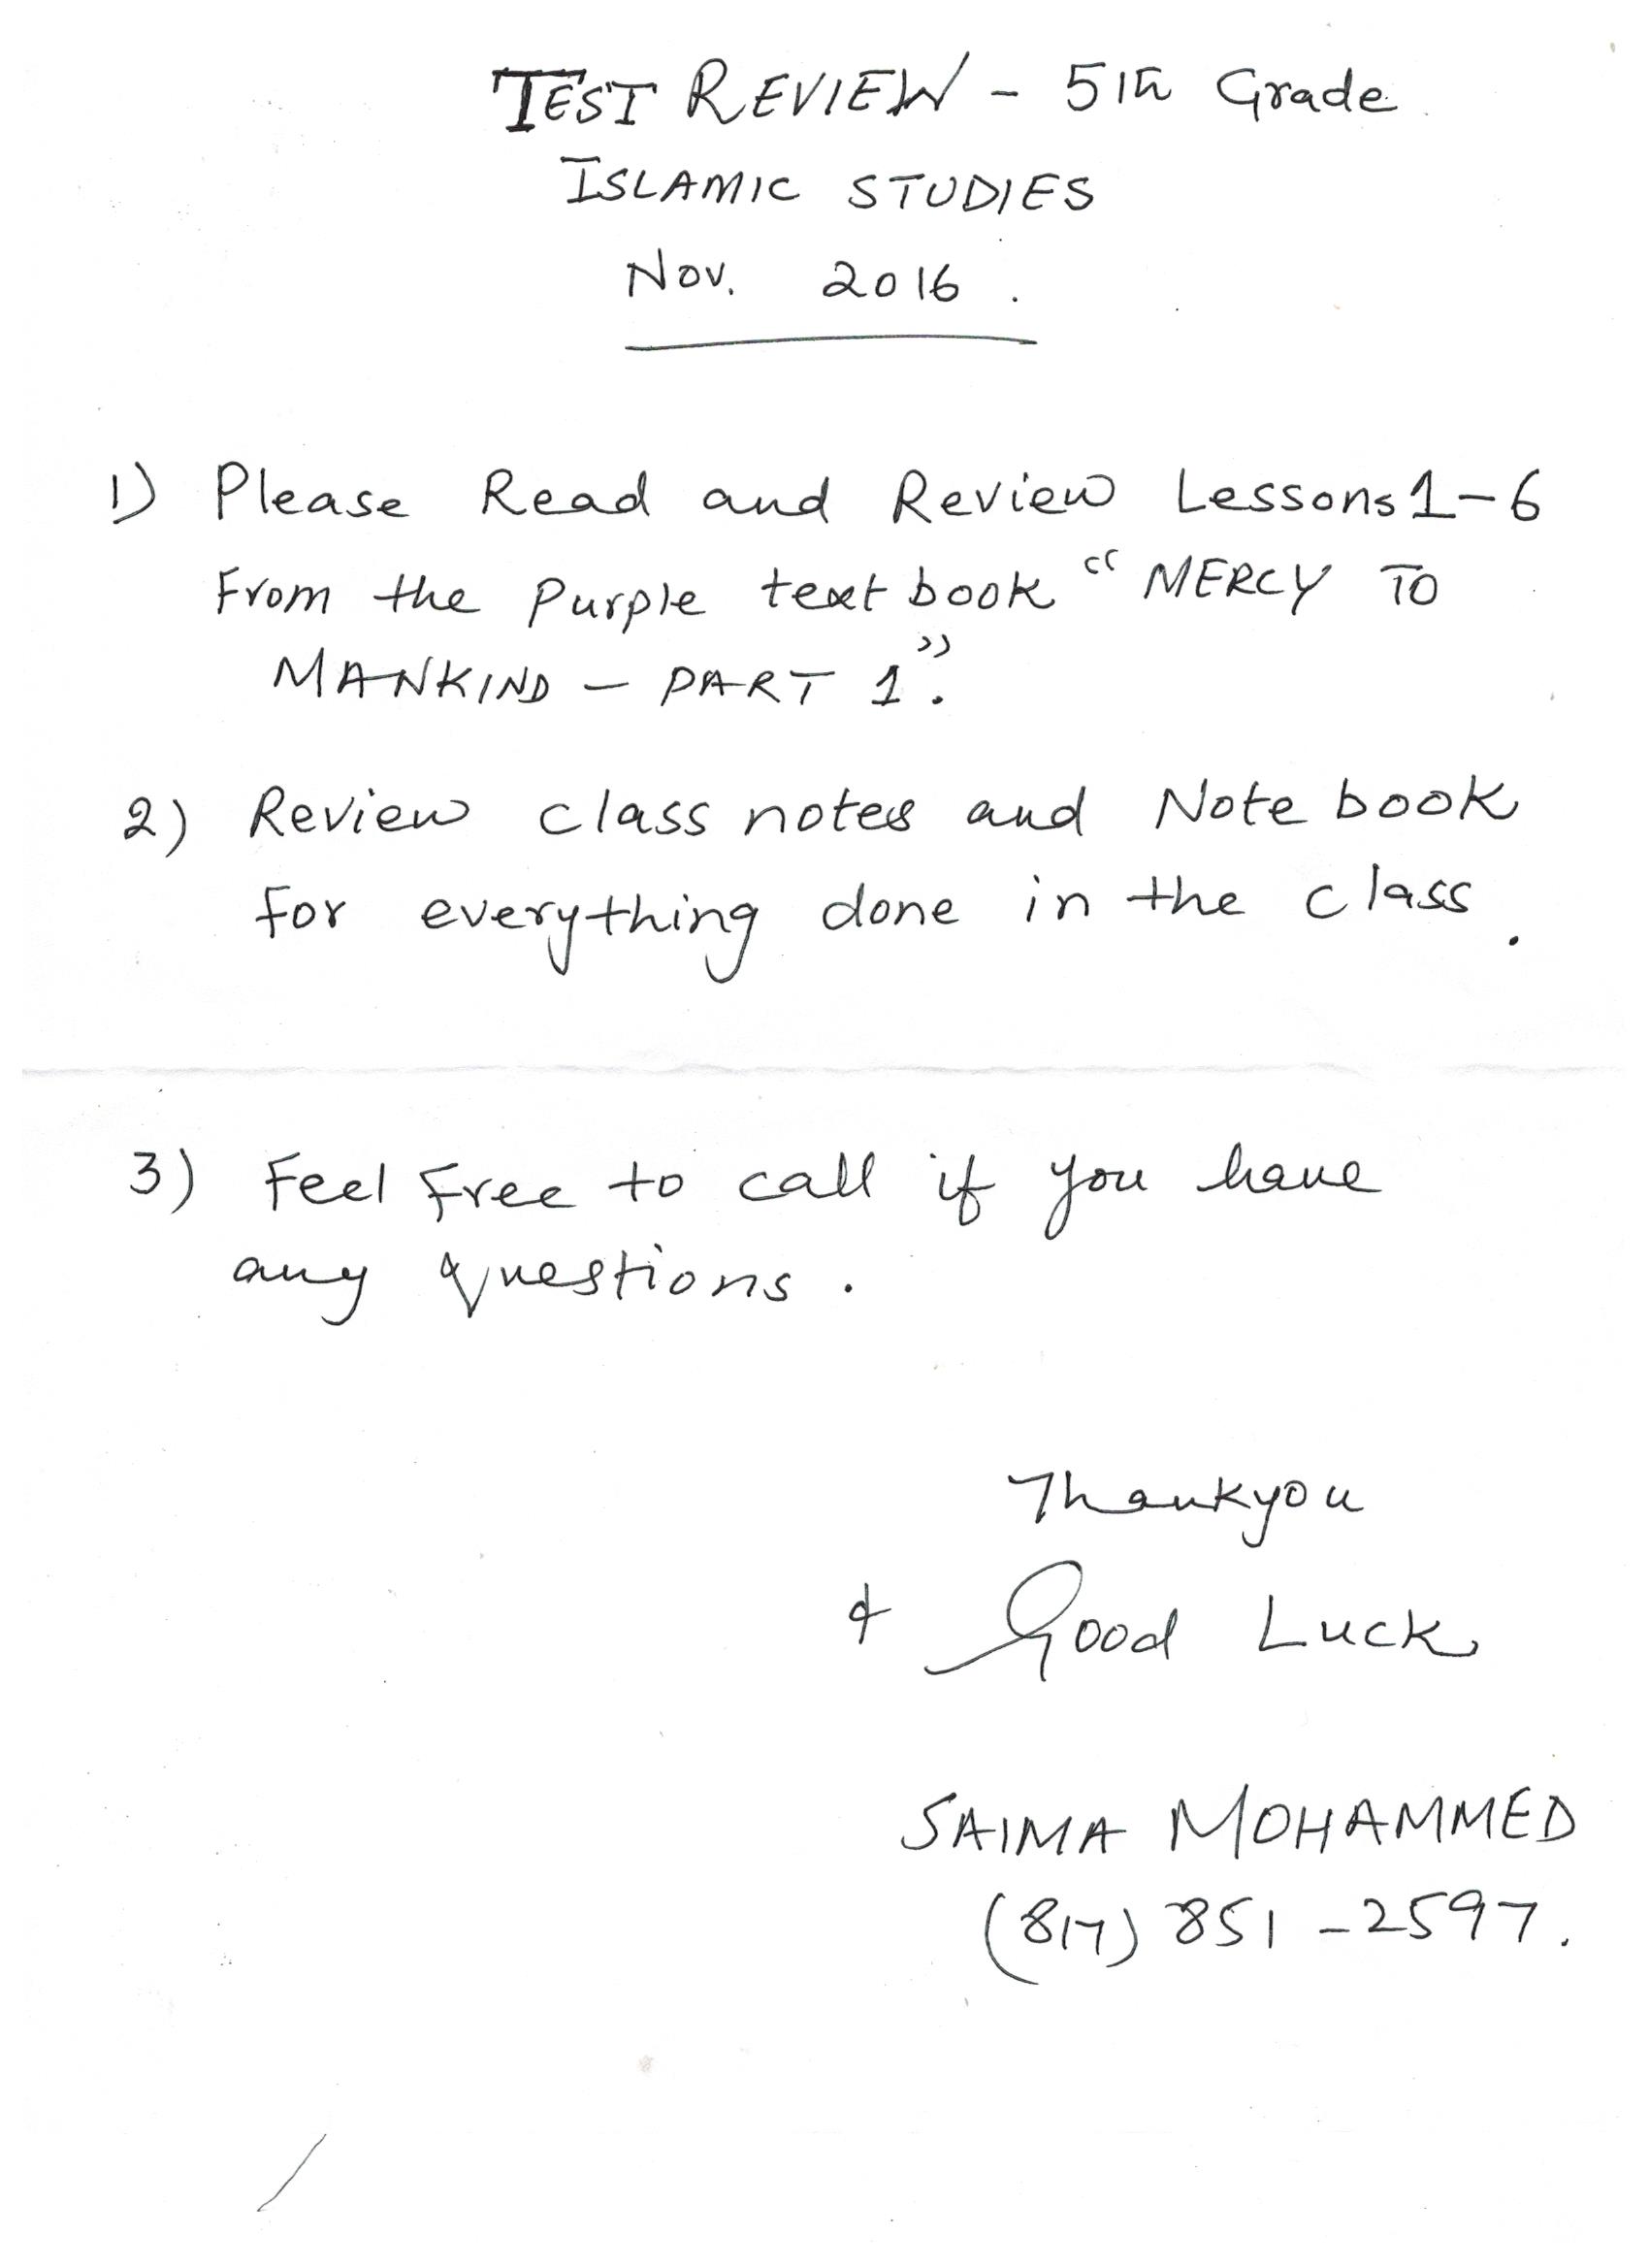 TEST REVIEW - 5th Grade
ISLAMIC STUDIES
Nov. 2016.
1) Please Read and Review Lessons 1-6
From the purple text book "MERCY TO
MANKIND - PART 1".
2) Review class notes and Note book
for everything done in the class.
3) Feel free to call if you have
any questions.
Thankyou
& Good Luck
SAIMA MOHAMMED
(817) 851-2597.